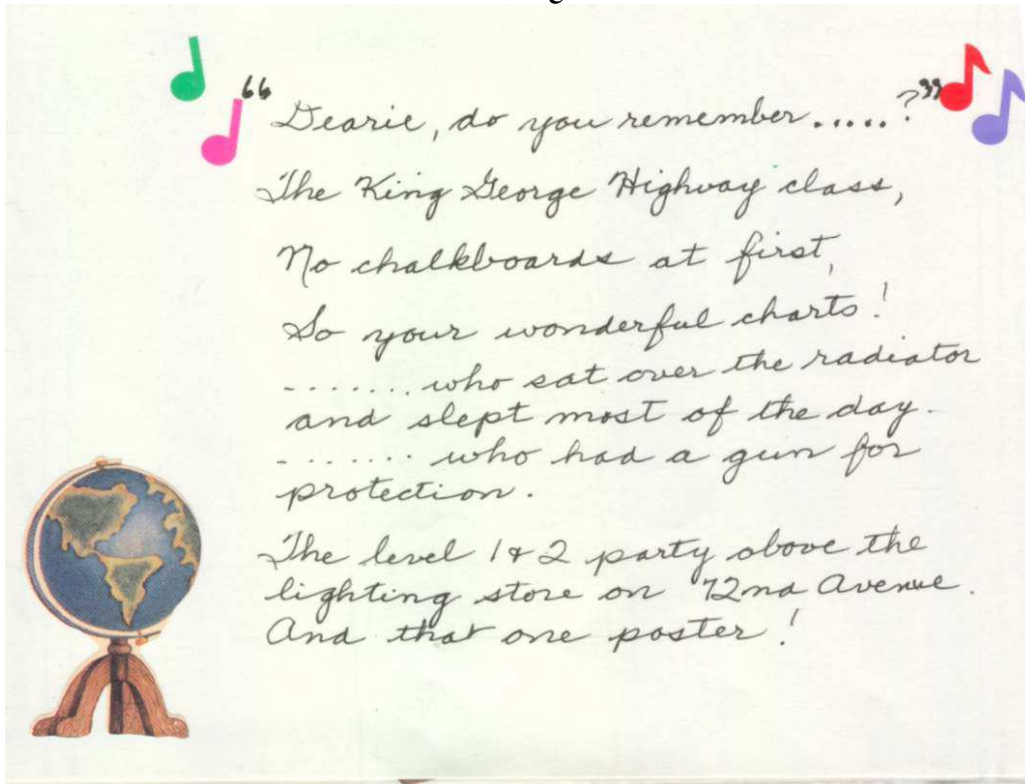 “Dearie, do you remember.....?”
The King George Highway class,
No chalkboards at first,
So your wonderful charts!
.......who sat over the radiator
and slept most of the day.
....... who had a gun for
protection.
The level 1 & 2 party above the
lighting store on 72nd Avenue.
And that one poster!